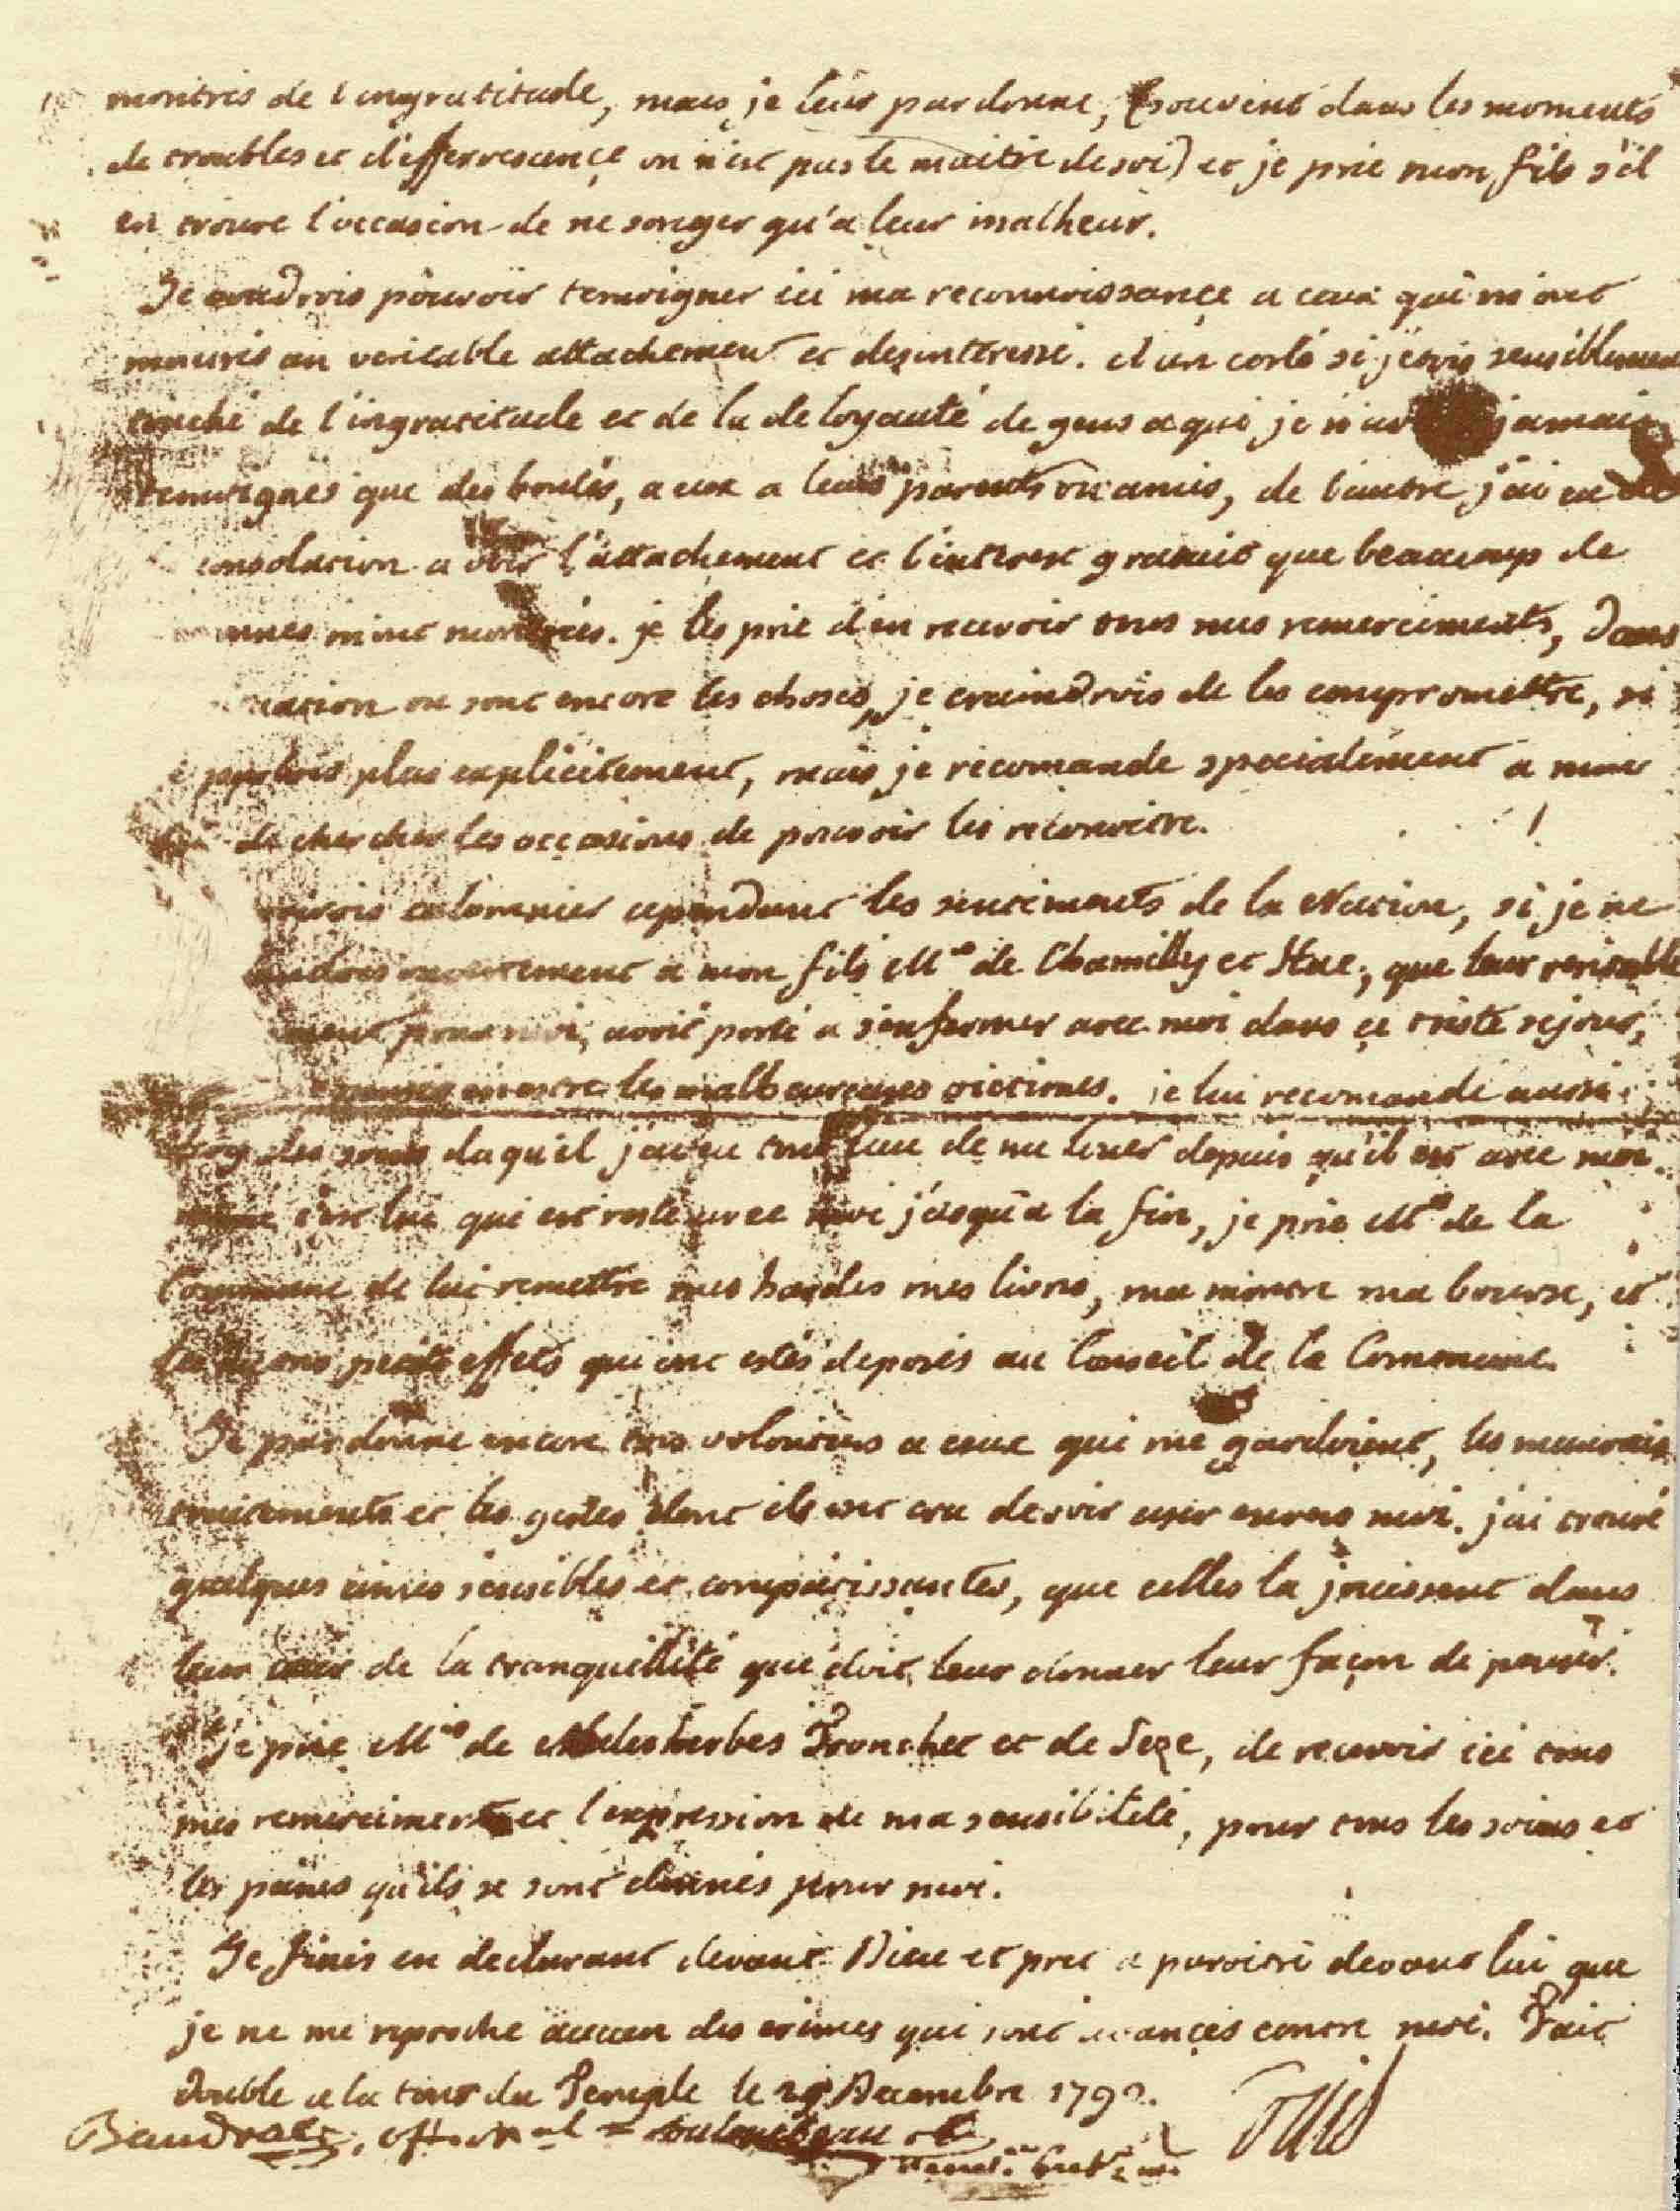 montrés de l'ingratitude, mais je leur pardonne, (souvent dans les moments
de troubles et d'effervescence on n'est pas le maitre de soi) et je prie mon fils s'il
en trouve l'occasion de ne songer qu'a leur malheur.
Je voudrois pouvoir temoigner ici ma reconnoissance a ceux qui m'ont
montrés un veritable attachement et desinteressé. d'un costé si j'etois sensiblement
touché de l'ingratitude et de la deloyauté de gens a qui je n'avois jamais
temoignés que des bontés, a eux a leurs parents ou amis, de l'autre j'ai eu de
consolation a voir l'attachement et l'interest gratuit que beaucoup de
m'ont montrés. je les prie d'en recevoir tous mes remerciments, Dans
ou sont encore les choses, je craindrois de les compromettre, si
je parlois plus explicitement, mais je recomande specialement a mon
de chercher les occasions de pouvoir les reconoitre.
calomnier cependant les sentiments de la Nation, si je ne
ouvertement a mon fils Mrs de Chamilly et Hue, que leur veritable
pour moi, avoit porté a s'enfermer avec moi dans ce triste sejour,
les malheureuses victimes. je lui recomande aussi
des soins duquel j'ai eu tout lieu de me louer depuis qu'il est avec moi
c'est lui qui est resté avec moi jusqu'a la fin, je prie Mrs de la
Commune de lui remettre mes hardes mes livres, ma montre ma bourse, et
les petits effets qui ont estés deposés au Conseil de la Commune.
Je pardonne encore tres volontiers a ceux qui me gardoient, les mauvais
traitements et les gestes dont ils ont cru devoir user envers moi. j'ai trouvé
quelques ames sensibles et compatissantes, que celles la jouissent dans
leur cœur de la tranquillité que doit leur donner leur façon de penser.
Je prie Mrs de Malesherbes Tronchet et de Seze, de recevoir ici tous
mes remerciments et l'expression de ma sensibilité, pour tous les soins et
les peines qu'ils se sont donnés pour moi.
Je finis en declarant devant Dieu et pret a paroitre devant lui que
je ne me reproche aucun des crimes qui sont avancés contre moi. Fait
double a la tour du Temple le 25 Decembre 1792.
Baudrais, off. m.al
Louis